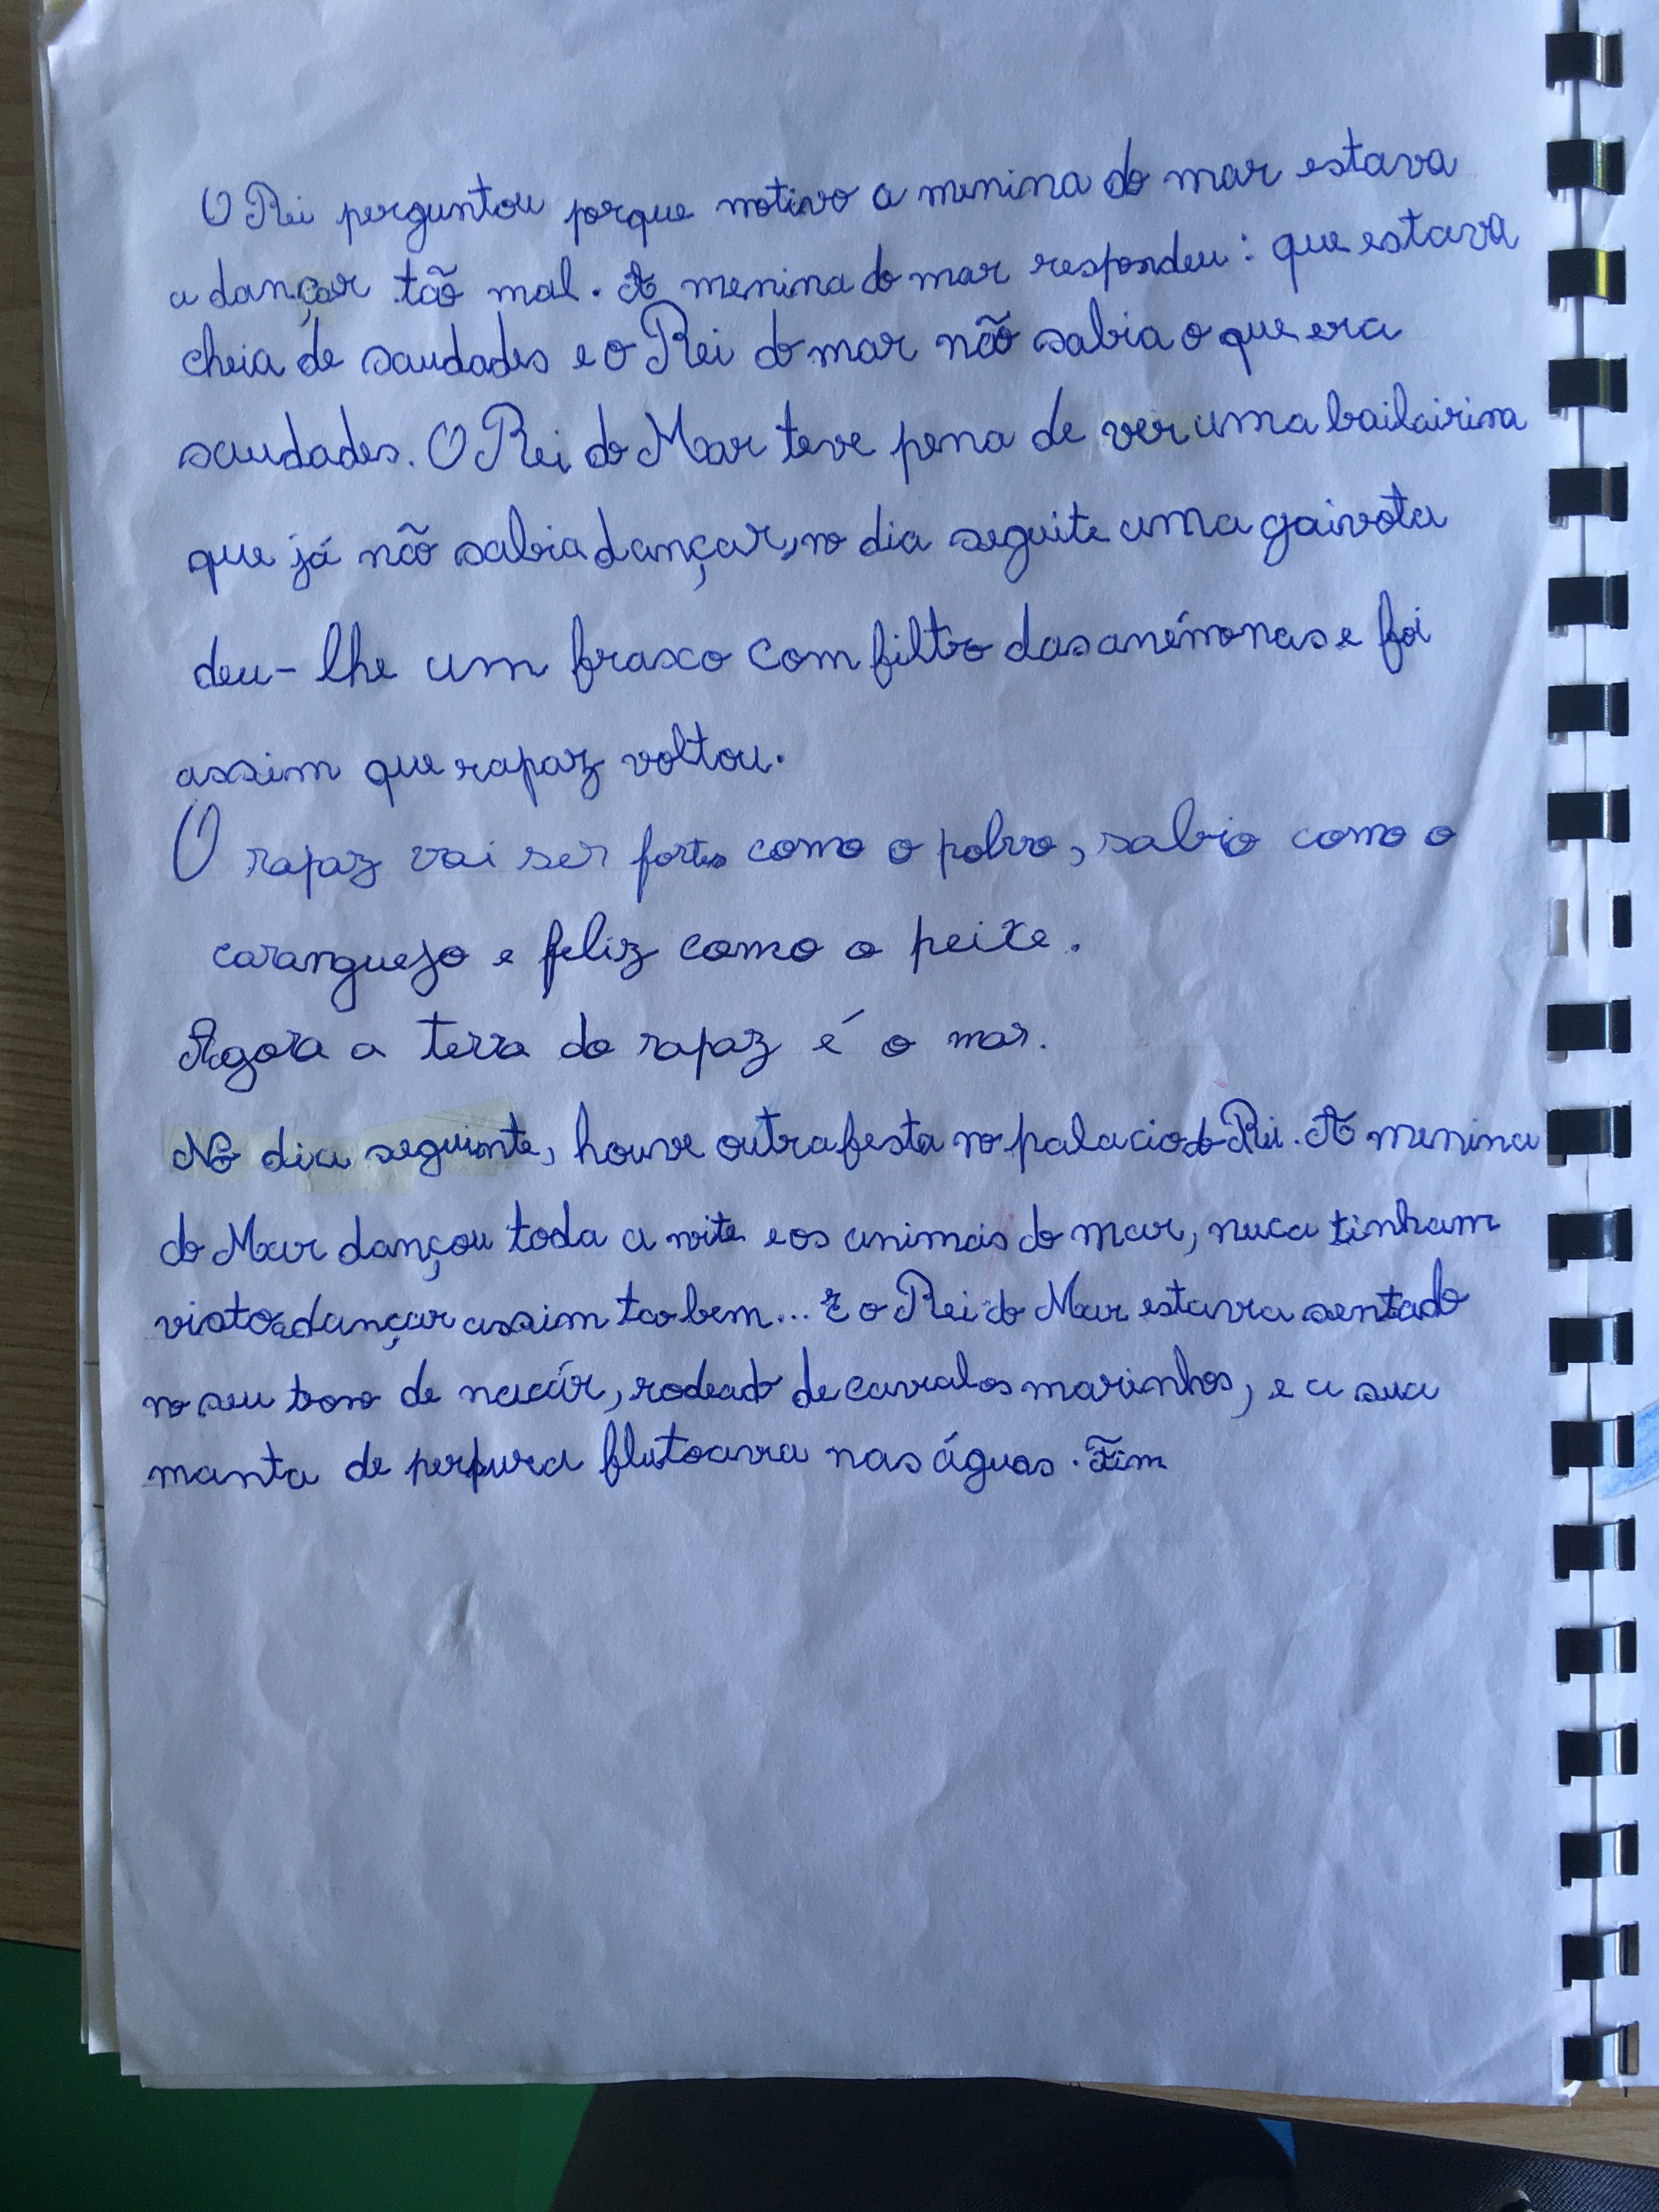 O Rei perguntou porque motivo a menina do mar estava
a dançar tão mal. A menina do mar respondeu: que estava
cheia de saudades e o Rei do mar não sabia o que era
saudades. O Rei do Mar teve pena de ver uma bailairina
que já não sabia dançar, no dia seguite uma gaivota
deu-lhe um fraxco com filtro das anémonas e foi
assim que rapaz voltou.
O rapaz vai ser forte como o polvo, sabio como o
caranguejo e feliz como o peixe.
Agora a terra do rapaz é o mar.
No dia seguinte, houve outra festa no palacio do Rei. A menina
do Mar dançou toda a noite e os animais do mar, nuca tinham
visto a dançar assim tao bem... E o Rei do Mar estava sentado
no seu trono de nacár, rodeado de cavalos marinhos, e a sua
manta de perpura flutoava nas águas. Fim